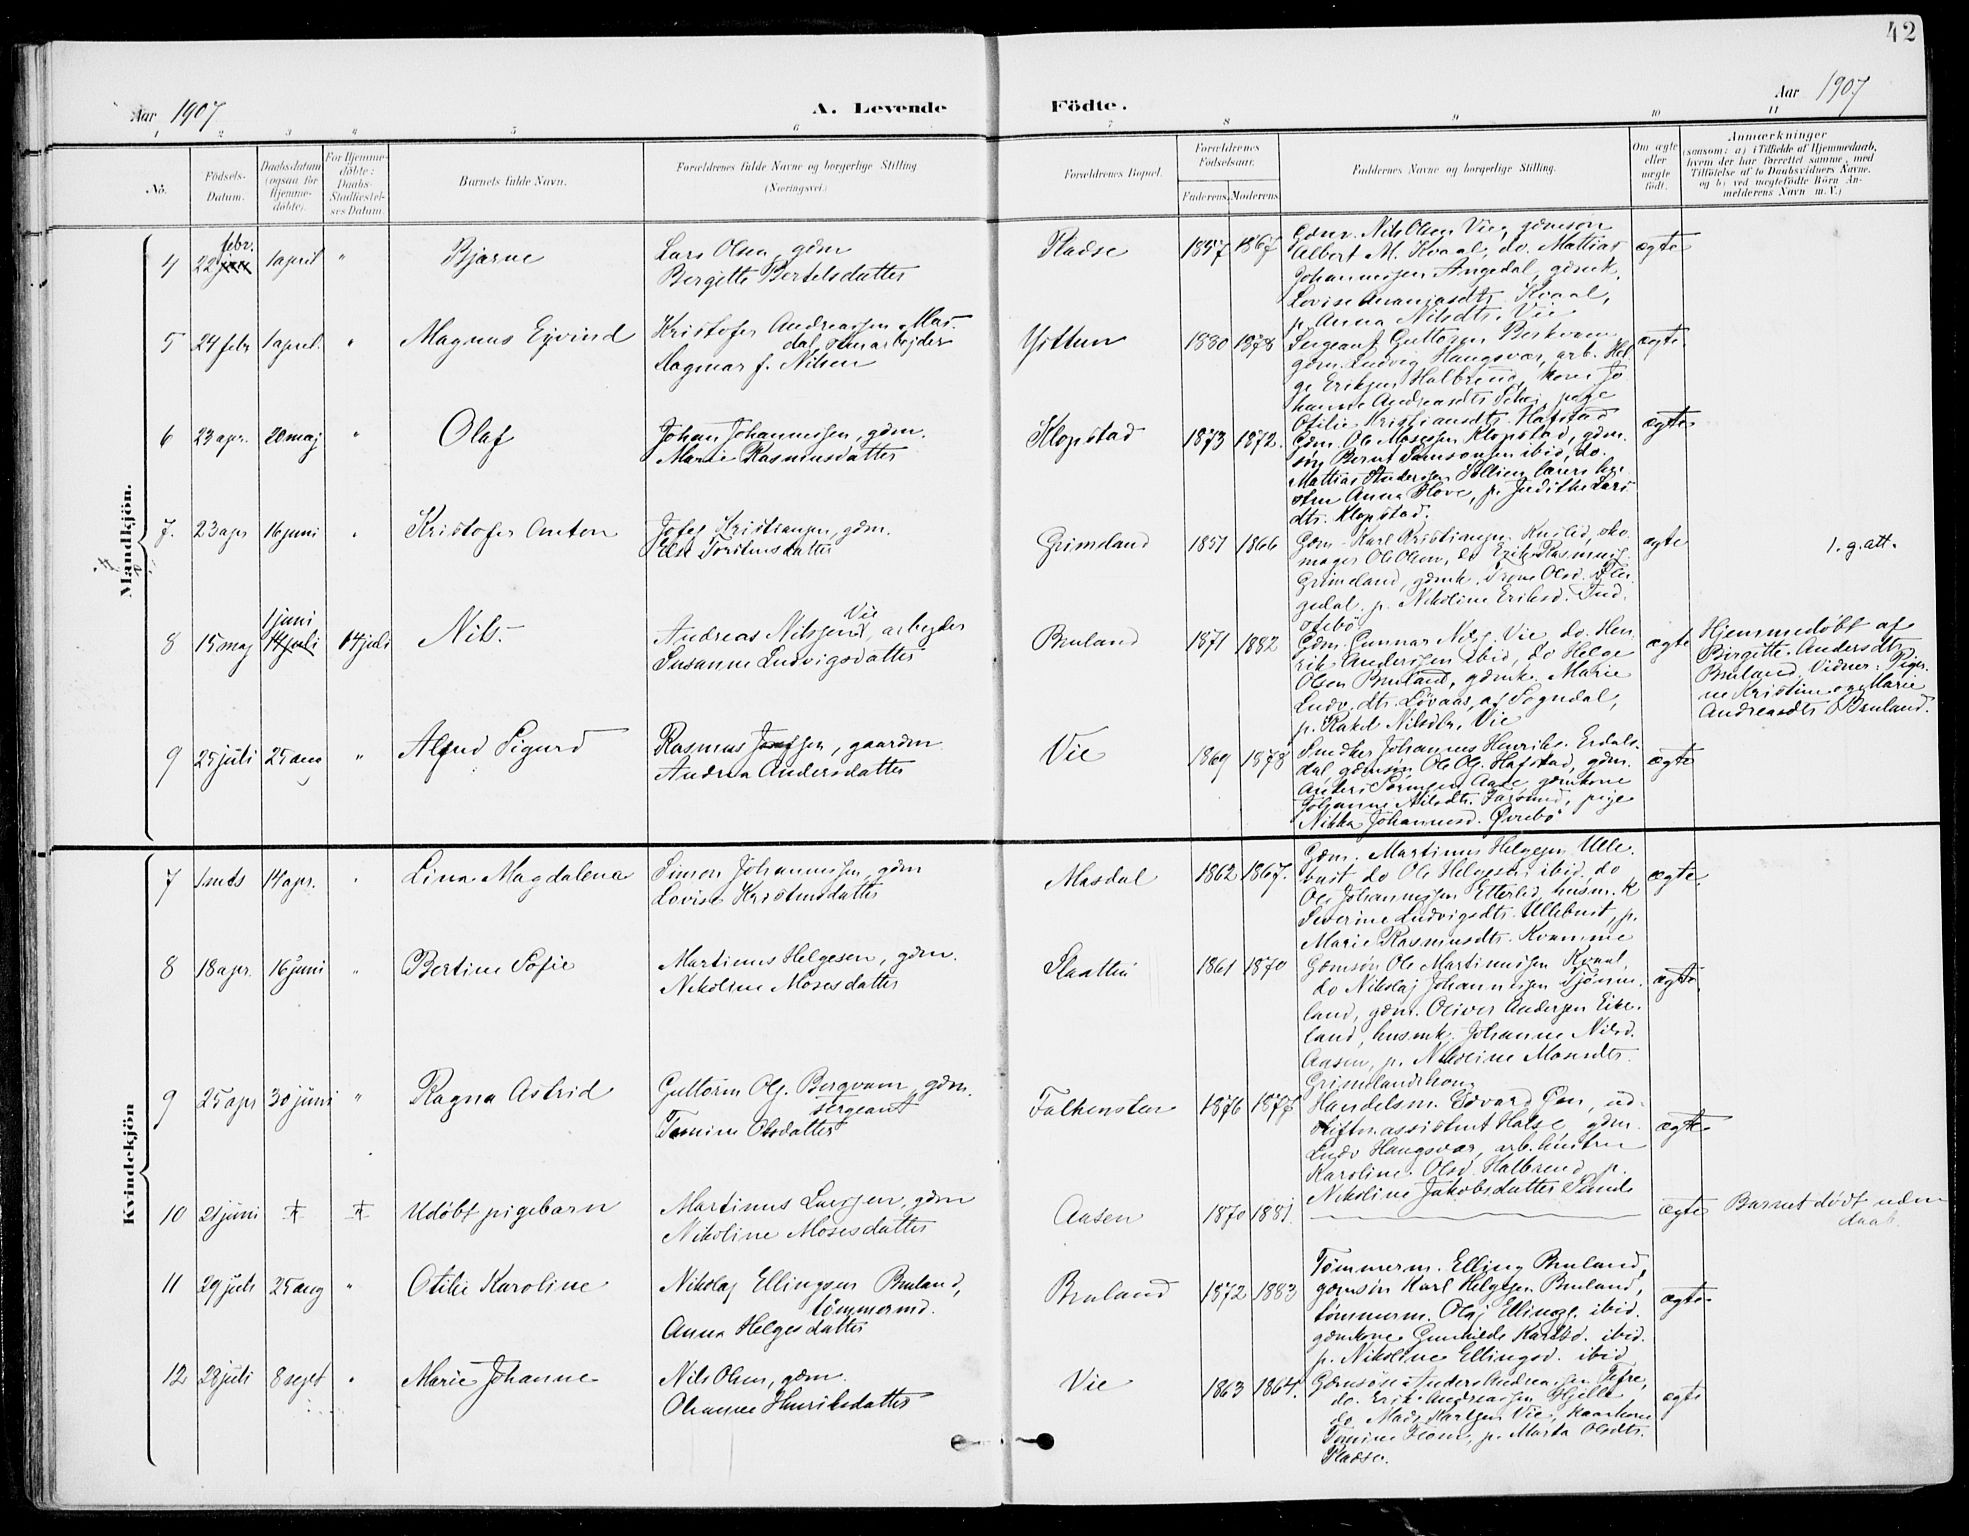 42
Aar 1907
A. Levende
Födte.
Aar 1907
1 2 3 4 5 6 7 8 9 10 11
No.
Födsels-
Datum.
Daabsdatum
(ogsaa for
Hjemme-
döbte).
For Hjemme-
döbte:
Daabs-
Stadfæstel-
ses Datum.
Barnets fulde Navn.
Forældrenes fulde Navne og borgerlige Stilling
(Næringsvei.)
Forældrenes Bopæl.
Forældrenes
Födselsaar.
Faderens. Moderens.
Faddernes Navne og borgerlige Stilling.
Om ægte
eller
uægte
födt.
Anmærkninger
(saasom: a) i Tilfælde af Hjemmedaab,
hvem der har forrettet samme, med
Tilföielse af to Daabsvidners Navne.
og b) ved uægtefödte Börn An-
melderens Navn m. V.)
Mandkjön.
4 22 febr. 1 april " Bjarne
Lars Olsen, gdm
Bergitte Bertelsdatter
Pladse 1857 1867
Gdmr. Nils Olsen Vie, gdmsøn
Albert M. Kvaal, do. Mattias
Johannessen Angedal, gdmk.
Lovise Ananiasdtr. Kvaal,
p. Anna Nilsdtr. Vie
ægte
5 24 febr 1 april. " Magnus Ejvind
Kristofer Andreassen Mas-
dal, stenarbejder
Dagmar f. Nilsen
1880 1878
Sergeant Guttorm
gdm. Ludvig Haugsvær, arb. Hel-
ge Eriksen Halbrend, kone Jo-
hanne Andreasdtr. pige
Otilie Kristiansdtr. Hafstad
ægte
6 23 apr. 20 maj " Olaf
Johan Johannessen, gdm.
Marie Rasmusdatter
Klopstad 1873 1872.
Gdm. Ole Mosessen Klopstad, gdm.
søn Bernt Samsonsen ibid, do.
Mattias Andersen
Anna Hove, p. Judithe Lars
dtr. Klopstad.
ægte
7. 23 apr 16 juni Kristofer Anton
Josef Kristiansen, gdm.
Else Torstensdatter
Grimeland 1851 1866
Gdm. Karl Kristiansen sko
mager Ole Olsen, do Erik Rasmus.
Grimeland, gdmk.
p. Nikoline Eriksd.
ægte
1. g. att.
8 15 maj 1 juni 14 juli 14 juli Nils.
Andreas Nilssen Vie, arbejder
Susanne Ludvigsdatter
Bruland 1871 1882
Gdm. Gunnar Nils. Vie do. Hen-
rik Anderssen ibid, do Helge
Olsen Bruland, gdmk. Marie
Ludv. dtr. Løvaas, af Sogndal,
p. Rakel Nilsdtr. Vie
ægte
Hjemmedøbt af
Birgitte Andersdtr
Bruland Vidner: Piger-
ne Kristine og Marie
Andreasdtr Bruland.
9 25 juli 25 aug " Alfred Sigurd
Rasmus Josefsen, gaardm.
Andrea Andersdatter
Vie 1869 1878
Snedker Johannes Henriks. Erdals-
dal, gdmsøn Ole Ols. Hafstad, gdm.
Anders gdmkone
Johanne Nilsdtr. pige
Nikka Johannesd. Øvrebø
ægte
Kvindekjön
7 1 mrts 14 apr. Lina Magdalena
Simon Johannessen, gdm
Lovise Kristensdatter
Masdal 1862 1867.
Gdm. Martinus Helgesen Ulle-
bust do Ole Helgesen ibid, do
Ole Johannessen Etterlid, husm. k
Severine Ludvigsdtr. Ullebust, p.
Marie Rasmusdtr. Kvamme
ægte.
8 18 apr. 16 juni " Bertine Sofie
Martinus Helgesen, gdm.
Nikoline Mosesdatter
1861 1870
Gdmsøn Ole Martinussen Kvaal,
do Nikolaj Johannessen
land, gdm. Oliver Andersen Eike-
land, husmk. Johanne Nilsd.
Aasen, p. Nikoline Mosesdtr.
ægte.
9 25 apr 30 juni " Ragna Astrid
Guttorm Ols. Bergvam, gdm.
sergeant
Tomine Olsdatter
Falkensten 1876 1877
Handelsm. Edvard ud-
skiftn.assistent Halse, gdm.
Ludv Haugsvær, arb. hustru
Karoline Olsd. Halbrend, p.
Nikoline Jakobsdatter Sunde
ægte
10 21 juni Udøbt pigebarn
Martinus Larssen, gdm
Nikoline Mosesdatter
Aasen 1870 1881.
ægte
Barnet dødt uden
daab.
11 29 juli 25 aug " Otilie Karoline
Nikolaj Ellingsen Bruland,
tømmermd.
Anna Helgesdatter
Bruland 1872 1883
Tømmerm. Elling Bruland,
gdmsøn Karl Helgesen Bruland,
tømmerm. Olaj Ellings. ibid.
gdmkone Gunhilde Karlsd. ibid.
p. Nikoline Ellingsd. ibid
ægte
12 28 juli 8 sept " Marie Johanne
Nils Olsen, gdm.
Oleanne Henriksdatter
Vie 1863 1864.
Gdmsøn Anders Andreassen Tefre,
do. Erik Andreassen Hjelle
do Mads Karlsen Vie, kaarkone
Tomine p. Marta Olsdtr.
Pladse.
ægte